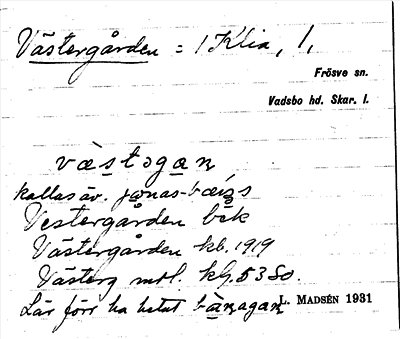 Västergården = 1 Klia, 1,
Frösve sn.
Vadsbo hd. Skar. l.
vàstəgaɳ
kallas äv. jonas-bæŋs
Vestergården bék
Västergården kb. 1919
Västerg mtl. kg. 5380.
Lär förr ha hetat bànagaɳ
L. MADSÉN 1931